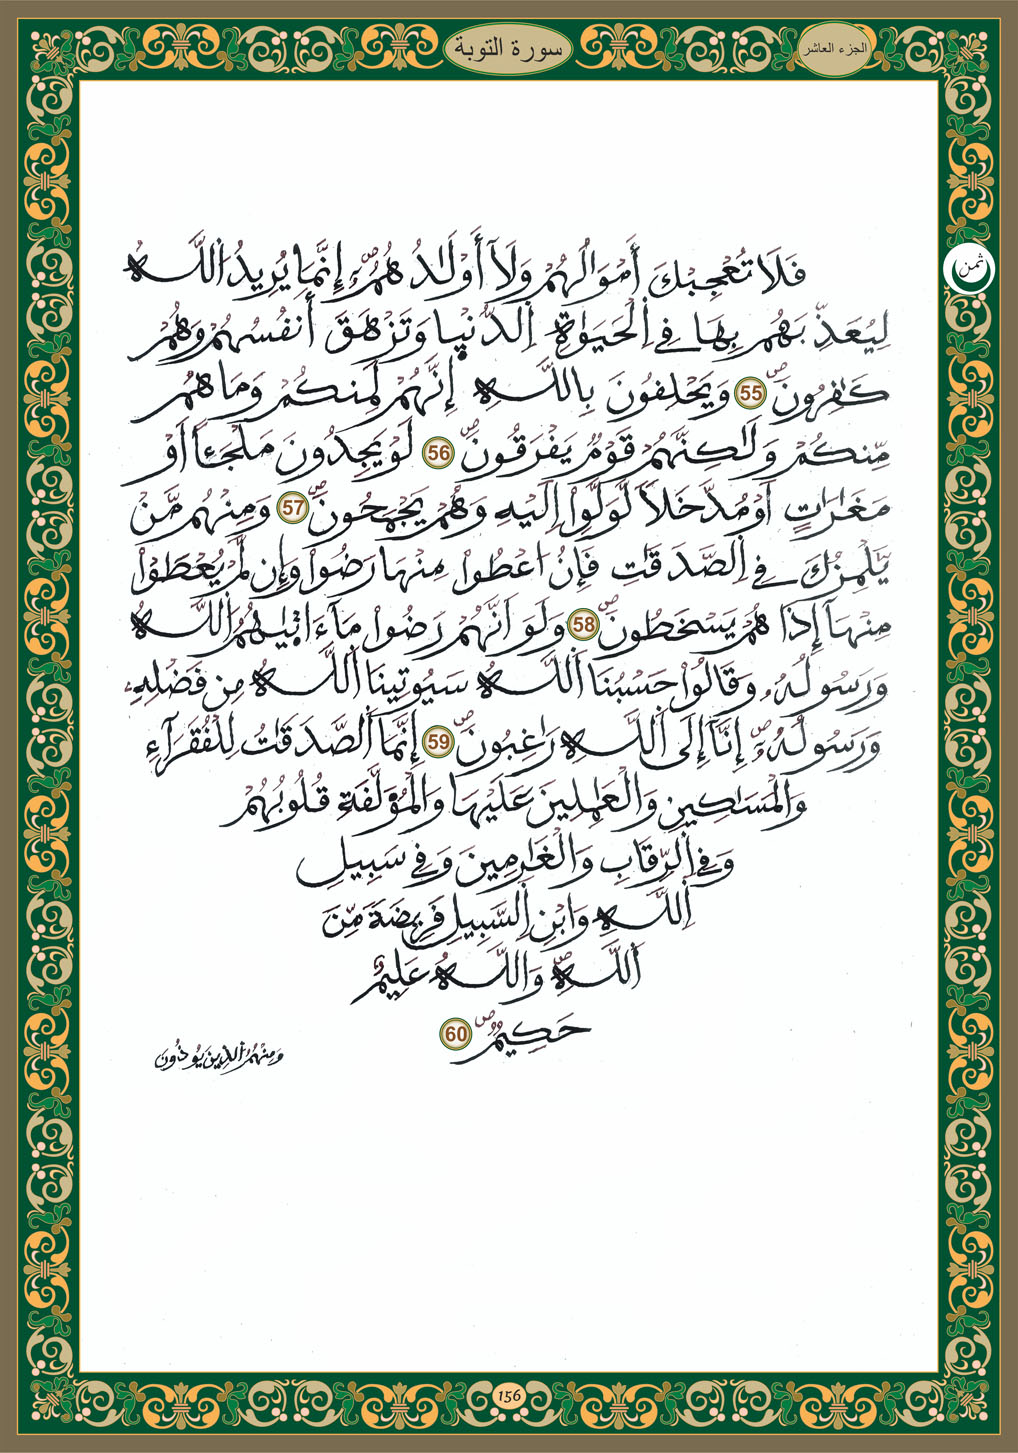 سورة التوبة
الجزء العاشر
ثمن
فَلَا تُعْجِبْكَ أَمْوَالُهُمْ وَلَآ أَوْلَٰدُهُمُۥٓ إِنَّمَا يُرِيدُ اَ۬للَّهُ
لِيُعَذِّبَهُم بِهَا فِے اِ۬لْحَيَوٰةِ اِ۬لدُّنْي۪ا وَتَزْهَقَ أَنفُسُهُمْ وَهُمْ
كَٰفِرُونَۖ 55 وَيَحْلِفُونَ بِاللَّهِ إِنَّهُمْ لَمِنكُمْ وَمَا هُم
مِّنكُمْ وَلَٰكِنَّهُمْ قَوْمٌ يَفْرَقُونَۖ 56 لَوْ يَجِدُونَ مَلْجَـًٔا اَوْ
مَغَٰرَٰتٍ اَوْ مُدَّخَلاً لَّوَلَّوِاْ اِلَيْهِ وَهُمْ يَجْمَحُونَۖ 57 وَمِنْهُم مَّنْ
يَّلْمِزُكَ فِے اِ۬لصَّدَقَٰتِ فَإِنُ ا۟عْطُواْ مِنْهَا رَضُواْ وَإِن لَّمْ يُعْطَوْاْ
مِنْهَآ إِذَا هُمْ يَسْخَطُونَۖ 58 وَلَوَ اَنَّهُمْ رَضُواْ مَآ ءَات۪يٰهُمُ اُ۬للَّهُ
وَرَسُولُهُۥ وَقَالُواْ حَسْبُنَا اَ۬للَّهُ سَيُوتِينَا اَ۬للَّهُ مِن فَضْلِهِۦ
وَرَسُولُهُۥٓۖ إِنَّآ إِلَى اَ۬للَّهِ رَٰغِبُونَۖ 59 إِنَّمَا اَ۬لصَّدَقَٰتُ لِلْفُقَرَآءِ
وَالْمَسَٰكِينِ وَالْعَٰمِلِينَ عَلَيْهَا وَالْمُؤَلَّفَةِ قُلُوبُهُمْ
وَفِے اِ۬لرِّقَابِ وَالْغَٰرِمِينَ وَفِے سَبِيلِ
اِ۬للَّهِ وَابْنِ اِ۬لسَّبِيلِ فَرِيضَةً مِّنَ
اَ۬للَّهِۖ وَاللَّهُ عَلِيمٌ
حَكِيمٌۖ 60
وَمِنْهُمُ الذِينَ يُوذُونَ
156